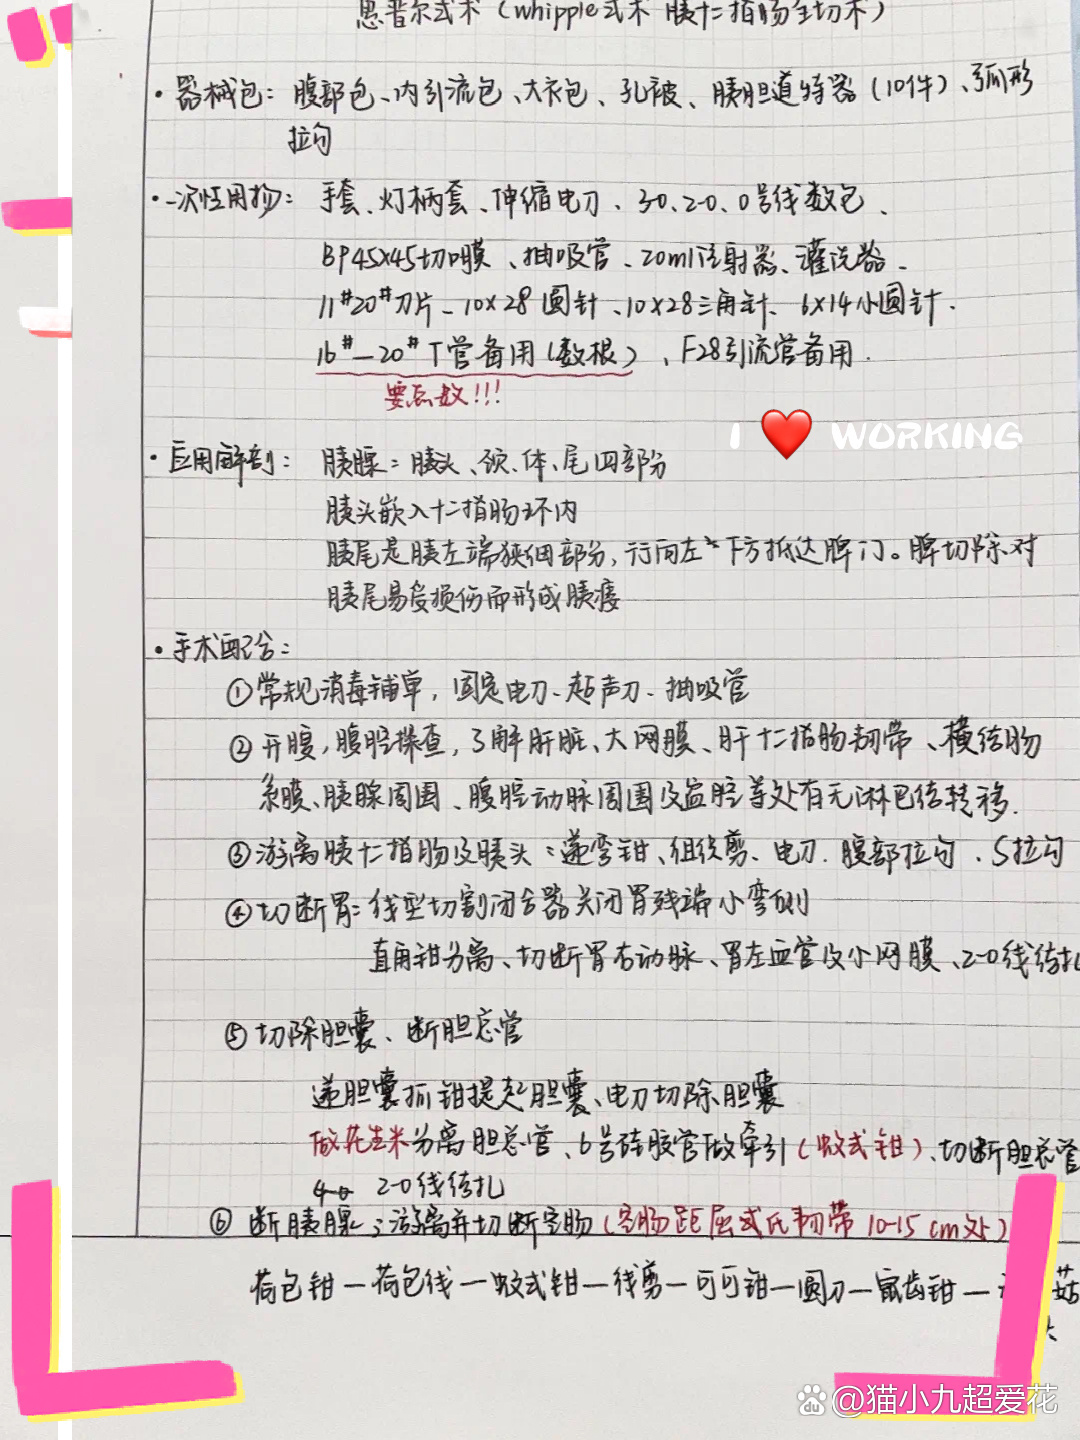 恩普尔式术（whipple式术 胰十二指肠全切术）
·器械包：腹部包、内引流包、大衣包、孔被、胰胆道特器（10件）、弧形
拉勾
·一次性用物：手套、灯柄套、伸缩电刀、3-0、2-0、0号线数包、
BP45×45切口膜、抽吸管、20ml注射器、灌洗器、
11#20#刀片、10×28圆针、10×28三角针、6×14小圆针.
16#—20#T管备用（数根）、F28引流管备用.
要点数!!!
I ❤️ WORKING
·应用解剖：胰腺：胰头、颈、体、尾四部分
胰头嵌入十二指肠环内
胰尾是胰左端狭细部分，行向左下方抵达脾门。脾切除对
胰尾易受损伤而形成胰瘘
·手术配合：
①常规消毒铺单，固定电刀、超声刀、抽吸管
②开腹，腹腔探查，了解肝脏、大网膜、肝十二指肠韧带、横结肠
系膜、胰腺周围、腹腔动脉周围及盆腔等处有无淋巴结转移.
③游离胰十二指肠及胰头：递弯钳、组织剪、电刀、腹部拉勾、S拉勾
④切断胃：线型切割闭合器关闭胃残端小弯侧
直角钳分离、切断胃右动脉、胃左血管及小网膜、2-0线结扎
⑤切除胆囊、断胆总管
递胆囊抓钳提起胆囊、电刀切除胆囊
做花生米分离胆总管、6号硅胶管做牵引（蚊式钳）、切断胆总管
4-0 2-0线结扎
⑥断胰腺；游离并切断空肠（空肠距屈氏韧带10-15cm处）
荷包钳—荷包线—蚊式钳—线剪—可可钳—圆刀—鼠齿钳—菇
头
@猫小九超爱花